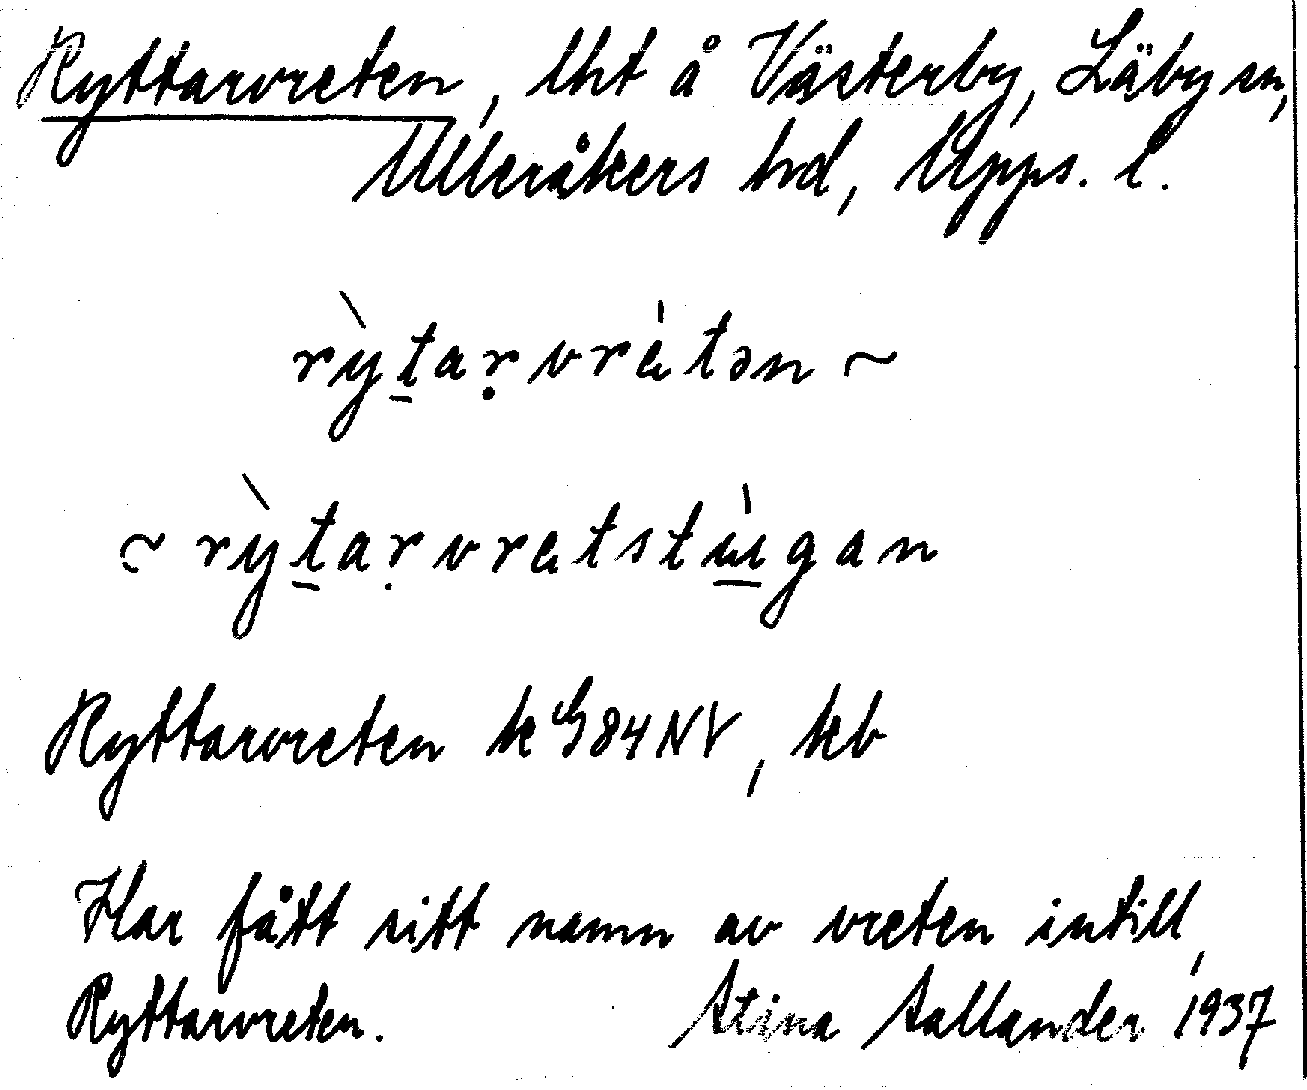 Ryttarvreten, lht å Västerby, Läby sn,
Ulleråkers hd, Upps. l.
rỳtaṛvrètən ~
~ rỳtaṛvretstùgan
Ryttarvreten k G84NV, kb
Har fått sitt namn av vreten intill,
Ryttarvreten. Stina Sallander 1937